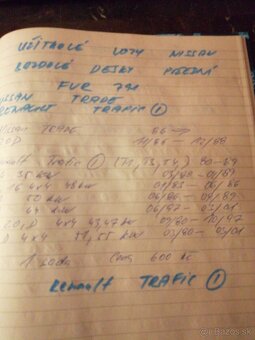 UŽITKOVÉ VOZY NISSAN
BRZDOVÉ DESKY PŘEDNÍ
FUR 791
NISSAN TRADE
RENAULT TRAFIC ①
NISSAN TRADE 86 →
11/86 - 12/88
Renault Trafic ① (T1, T3, T4) 80-89
35 kW 03/80 - 07/89
4x4 48 kW 01/85 - 06/86
50 kW 06/86 - 09/89
64 kW 06/87 - 03/01
4x4 43,47 kW 03/80 - 10/97
D 4x4 51,55 kW 03/80 - 03/01
1 sada Cena 600 kč
Renault TRAFIC ①
bazar.sk